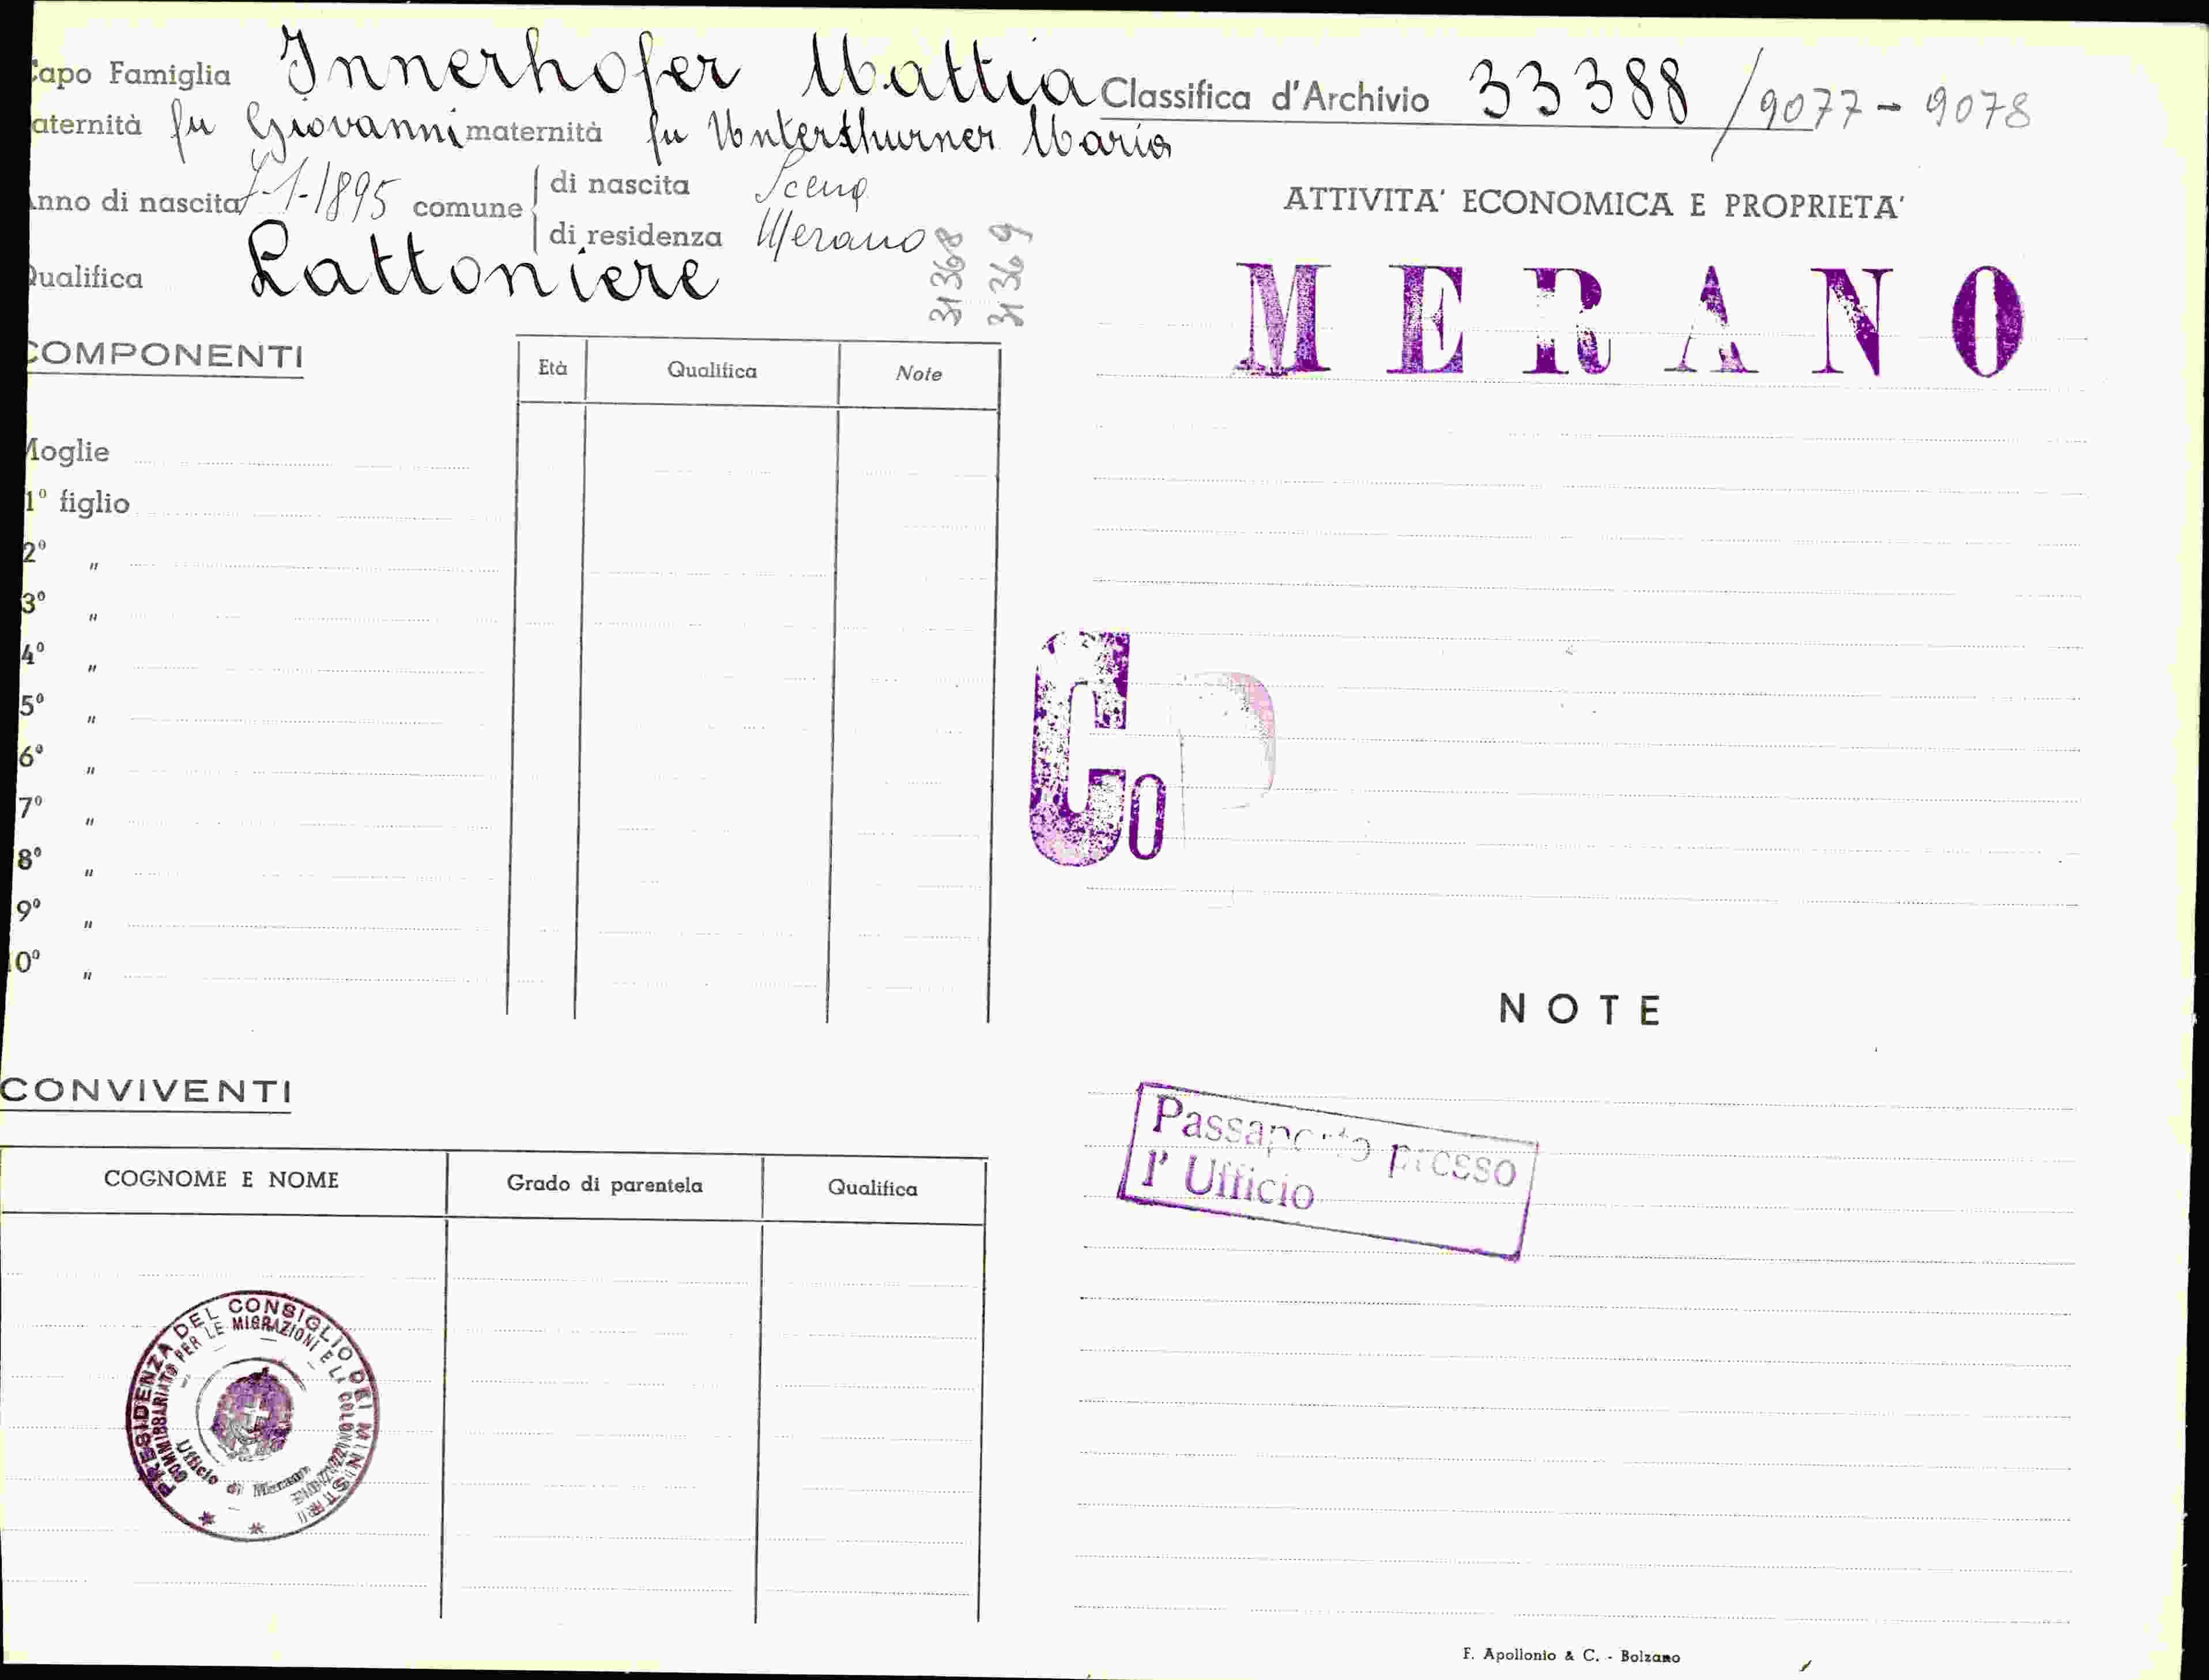 Capo Famiglia Innerhofer Mattia Classifica d'Archivio 33388 / 9077 - 9078
aternità fu Giovanni maternità fu Unterthurner Maria
Anno di nascita 7-1-1895 comune di nascita Scena
di residenza Merano
31368
31369
Qualifica Lattoniere
COMPONENTI
Età Qualifica Note
Moglie
1º figlio
2º "
3º "
4º "
5º "
6º "
7º "
8º "
9º "
10º "
CONVIVENTI
COGNOME E NOME Grado di parentela Qualifica
PRESIDENZA DEL CONSIGLIO DEI MINISTRI
COMMISSARIATO PER LE MIGRAZIONI E LA COLONIZZAZIONE
Ufficio di Merano
ATTIVITA' ECONOMICA E PROPRIETA'
MERANO
Co
D
NOTE
Passaporto presso
l' Ufficio
F. Apollonio & C. - Bolzano